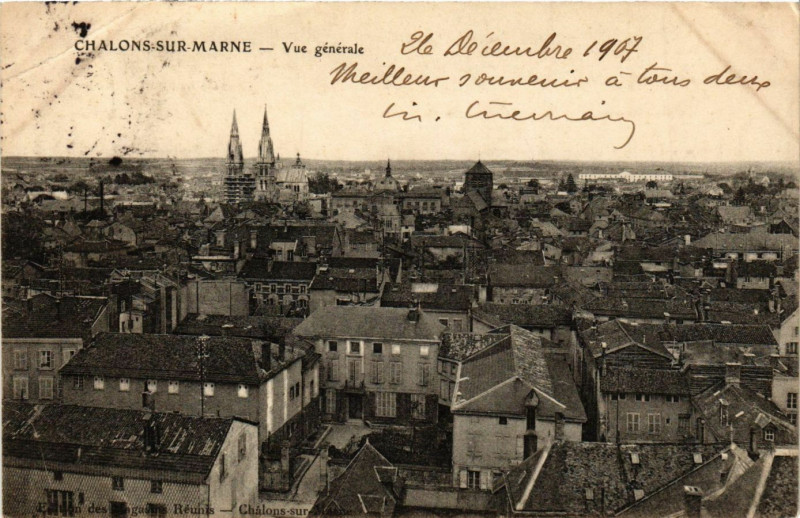 CHALONS-SUR-MARNE — Vue générale
26 Décembre 1907
Meilleur souvenir à tous deux
Edition des Magasins Réunis — Châlons-sur-Marne